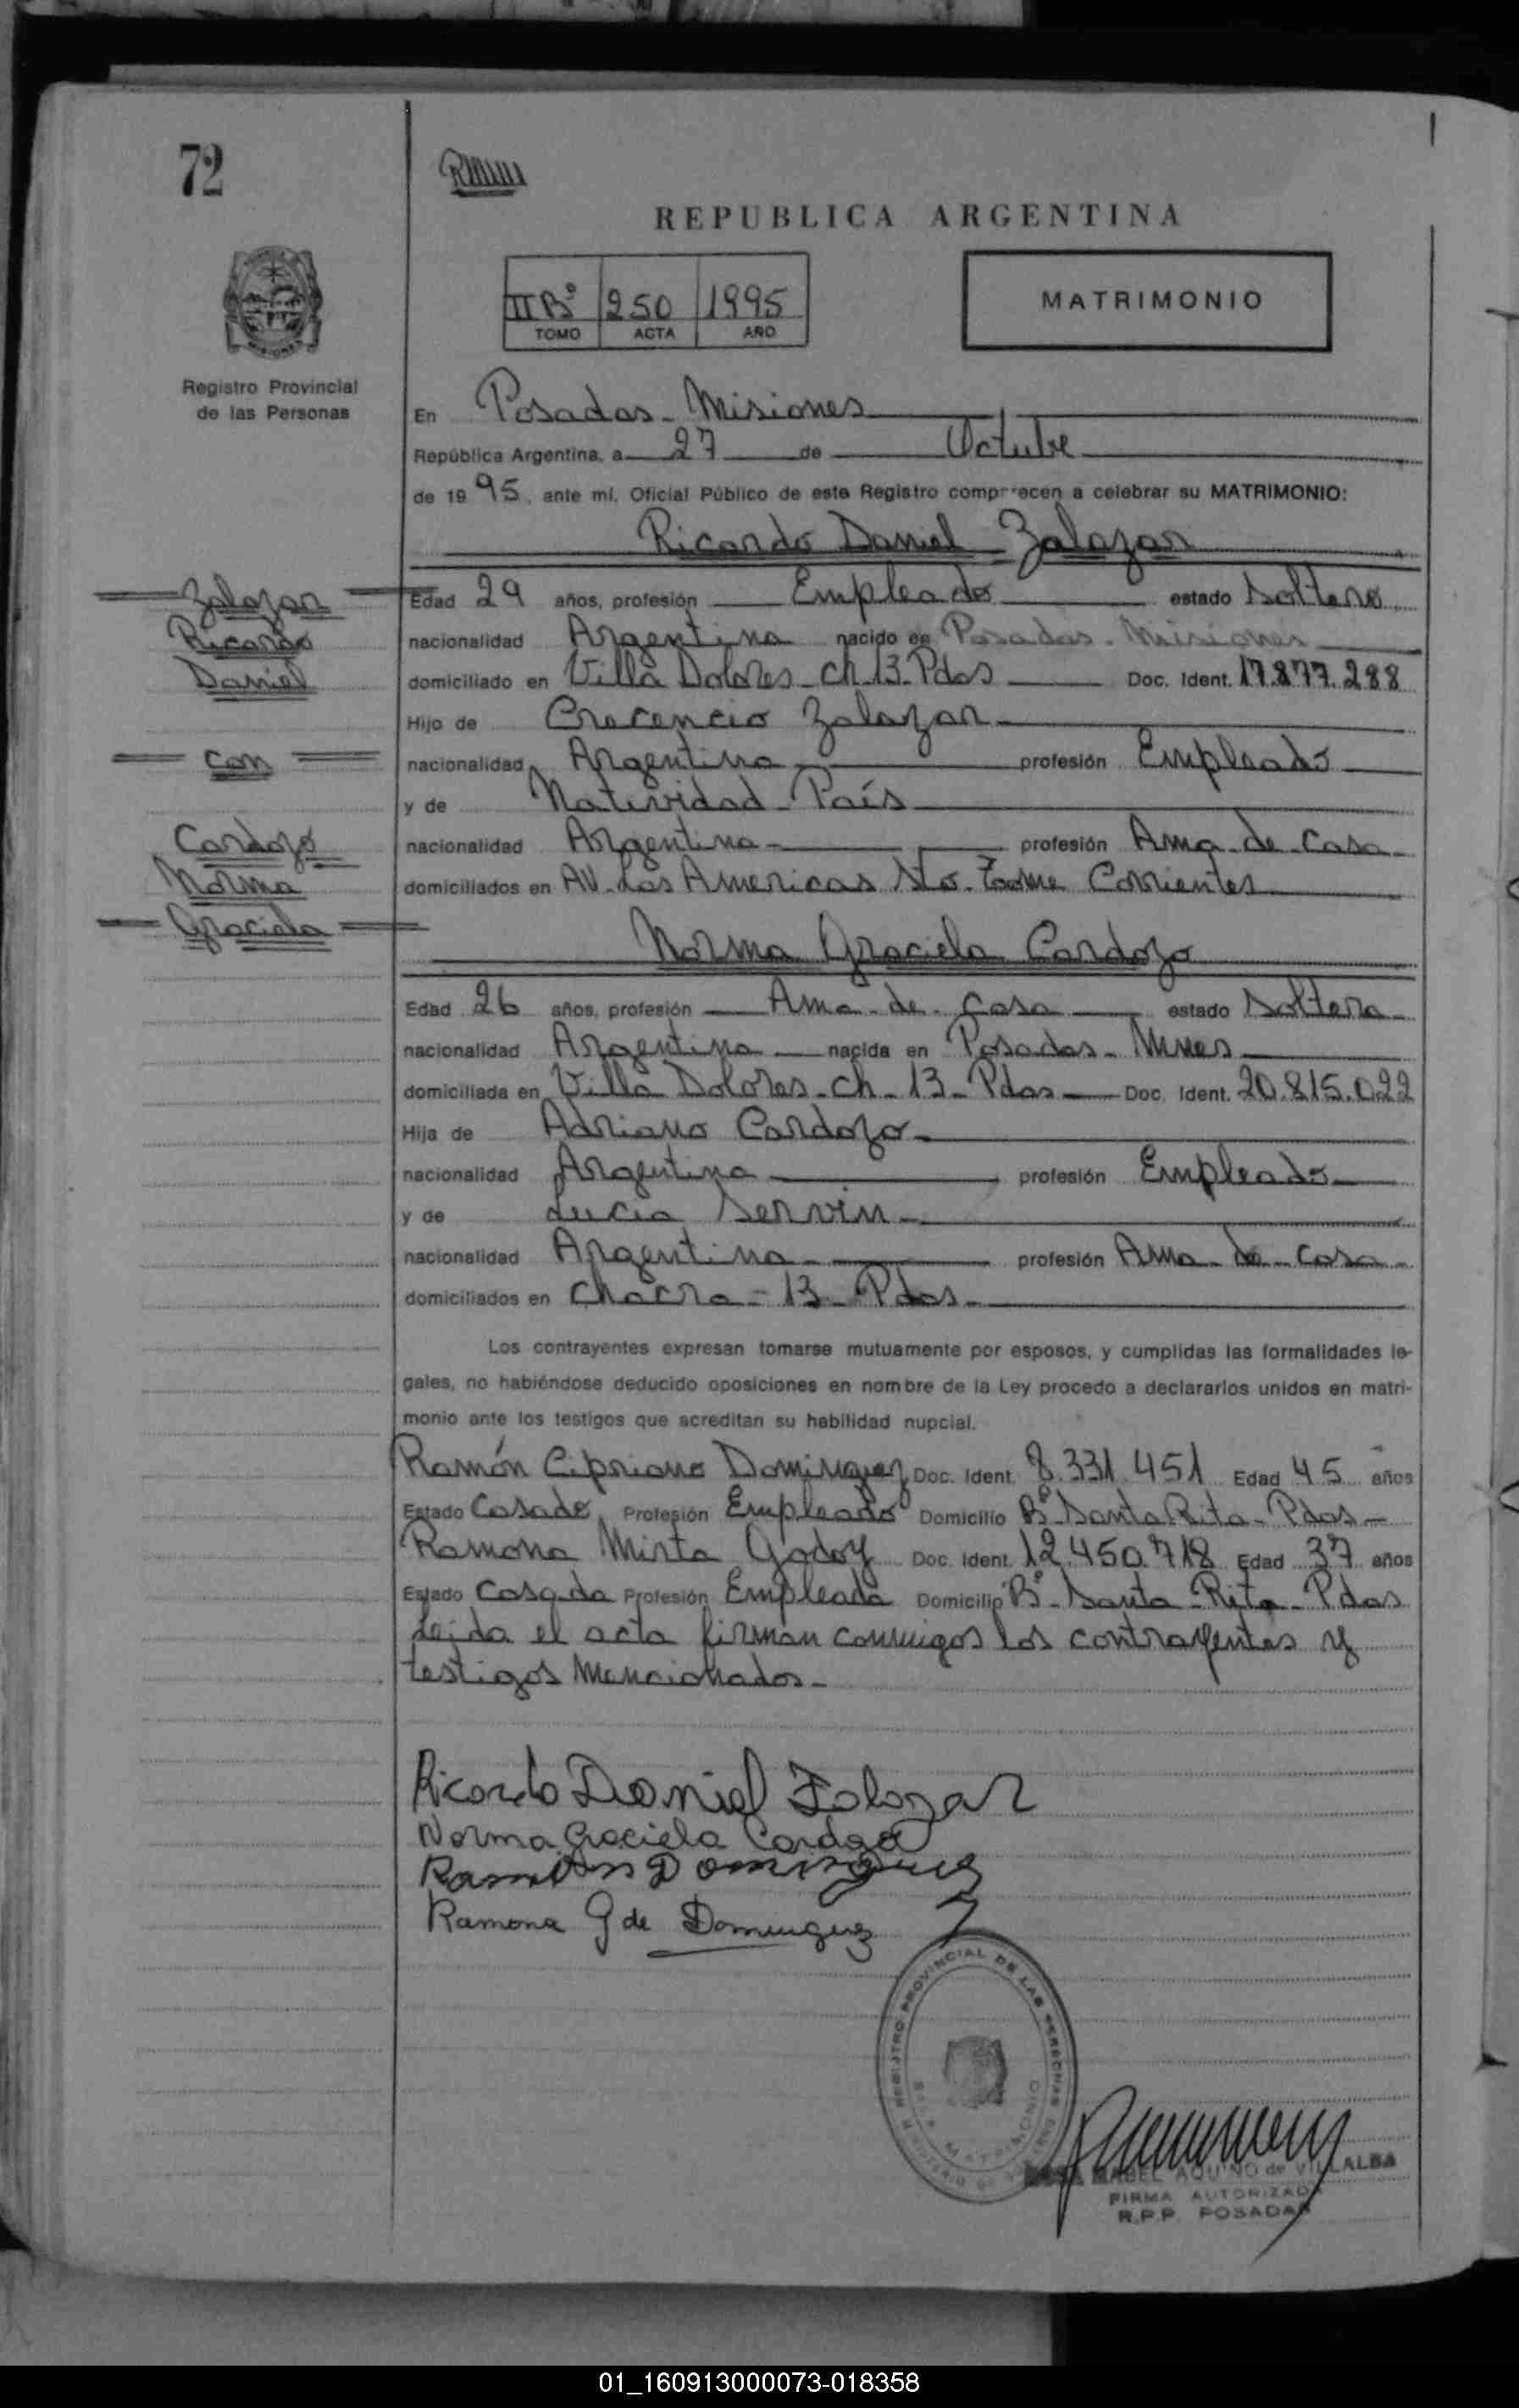 72
REPUBLICA ARGENTINA
II Bº 250 1995
TOMO ACTA AÑO
MATRIMONIO
Registro Provincial
de las Personas
En Posadas - Misiones
República Argentina, a 27 de Octubre
de 1995, ante mí, Oficial Público de este Registro comparecen a celebrar su MATRIMONIO:
Ricardo Daniel Zalazar
Zalazar
Ricardo
Daniel
con
Cardozo
Norma
Graciela
Edad 29 años, profesión Empleado estado Soltero
nacionalidad Argentina nacido en Posadas - Misiones
domiciliado en Villa Dolores - Ch. 13 - Pdas Doc. Ident. 17.877.288
Hijo de Crecencio Zalazar
nacionalidad Argentina profesión Empleado
y de Natividad País
nacionalidad Argentina profesión Ama de Casa
domiciliados en AV. Las Americas Sto. Tome Corrientes
Norma Graciela Cardozo
Edad 26 años, profesión Ama de Casa estado Soltera
nacionalidad Argentina nacida en Posadas - Mnes
domiciliada en Villa Dolores - Ch - 13 - Pdas Doc. Ident. 20.815.022
Hija de Adriano Cardozo
nacionalidad Argentina profesión Empleado
y de Lucia Servin
nacionalidad Argentina profesión Ama de Casa
domiciliados en Chacra - 13 - Pdas
Los contrayentes expresan tomarse mutuamente por esposos, y cumplidas las formalidades le-
gales, no habiéndose deducido oposiciones en nombre de la Ley procedo a declararlos unidos en matri-
monio ante los testigos que acreditan su habilidad nupcial.
Ramón Cipriano Dominguez Doc. Ident. 8.331.451 Edad 45 años
Estado Casado Profesión Empleado Domicilio Bº Santa Rita - Pdas
Ramona Mirta Godoy Doc. Ident. 12.450.718 Edad 37 años
Estado Casada Profesión Empleada Domicilio Bº - Santa - Rita - Pdas
Leida el acta firman conmigos los contrayentes y
testigos mencionados -
Ricardo Daniel Zalazar
Norma Graciela Cardozo
Ramon Dominguez
Ramona G de Dominguez
REGISTRO PROVINCIAL DE LAS PERSONAS
MABEL AQUINO de VILLALBA
FIRMA AUTORIZADA
R.P.P. POSADAS
01_160913000073-018358